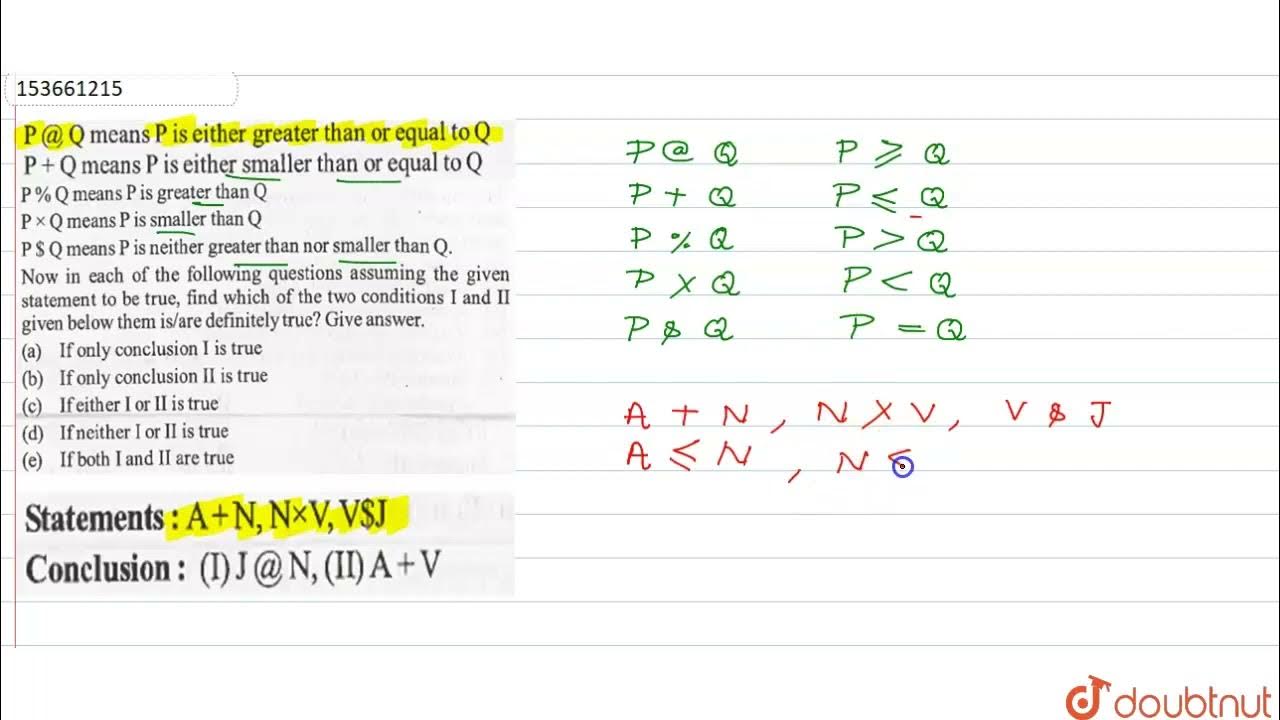 153661215
P @ Q means P is either greater than or equal to Q
P + Q means P is either smaller than or equal to Q
P % Q means P is greater than Q
P × Q means P is smaller than Q
P $ Q means P is neither greater than nor smaller than Q.
Now in each of the following questions assuming the given
statement to be true, find which of the two conditions I and II
given below them is/are definitely true? Give answer.
(a) If only conclusion I is true
(b) If only conclusion II is true
(c) If either I or II is true
(d) If neither I or II is true
(e) If both I and II are true
Statements : A + N, N×V, V$J
Conclusion : (I) J @ N, (II) A + V
P @ Q P ≥ Q
P + Q P ≤ Q
P % Q P > Q
P × Q P < Q
P $ Q P = Q
A + N , N × V , V $ J
A ≤ N , N <
doubtnut